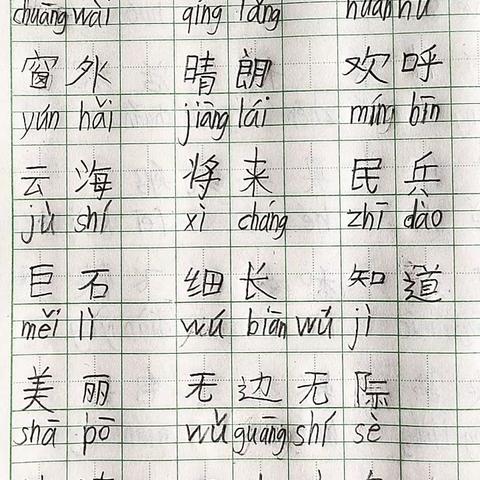 chuāng wài qíng lǎng huān hū
窗外 晴朗 欢呼
yún hǎi jiāng lái míng bīn
云海 将来 民兵
jù shí xì cháng zhī dào
巨石 细长 知道
měi lì wú biān wú jì
美丽 无边无际
shā pō wǔ guāng shí sè